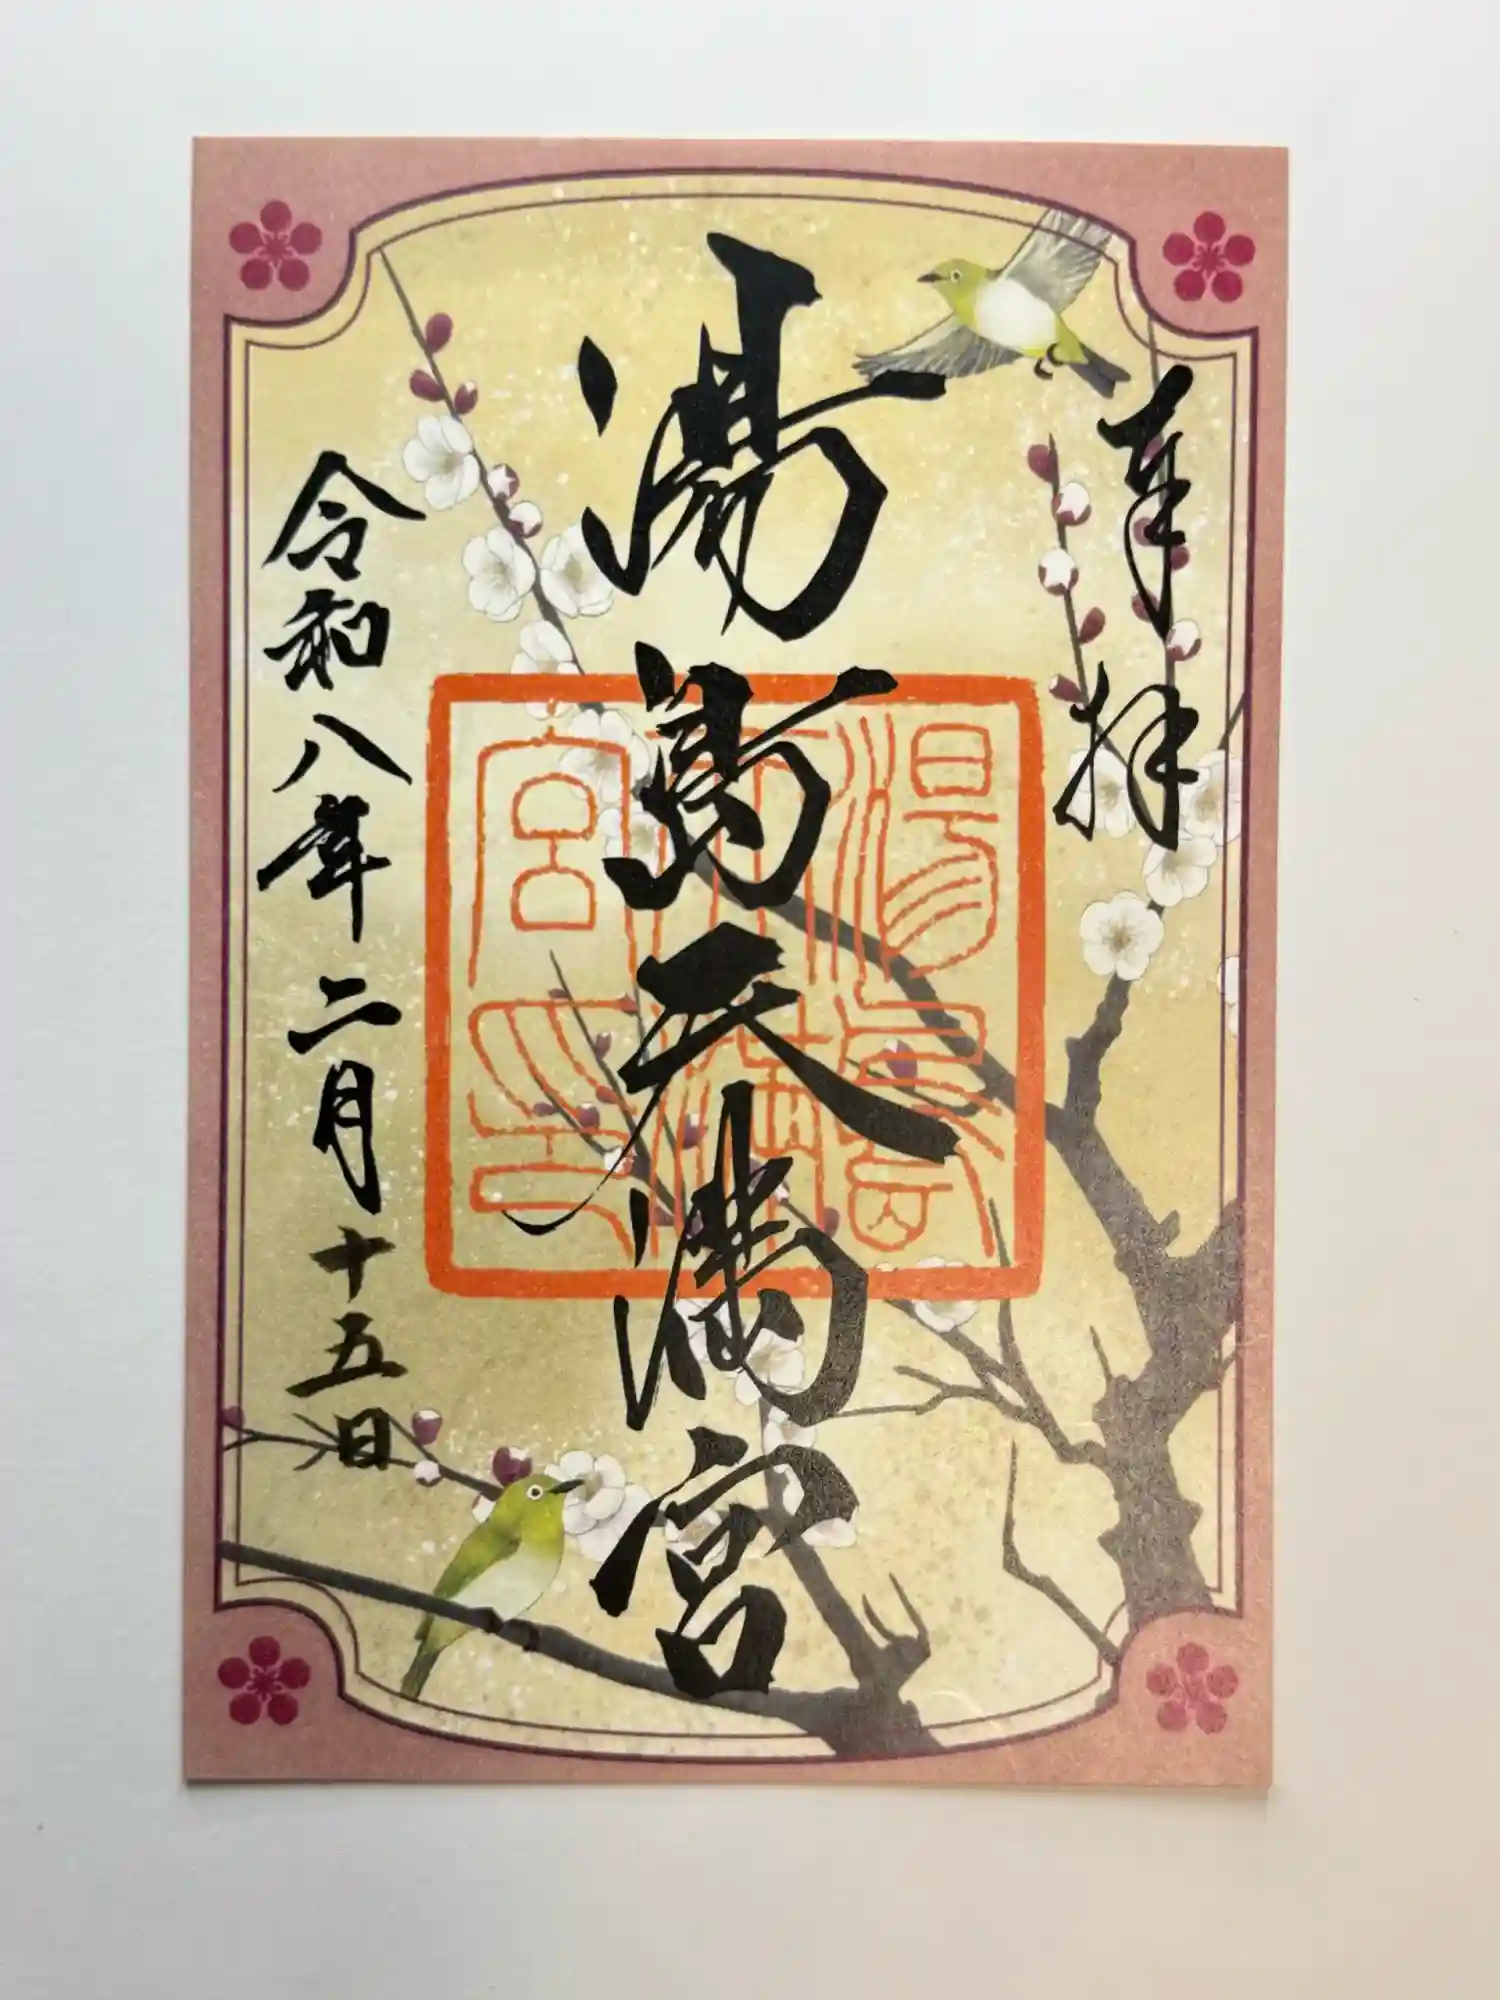 奉拝
湯島天満宮
湯島天満宮之印
令和八年二月十五日